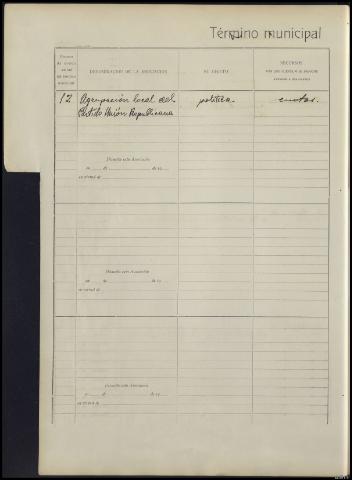 Término municipal
DENOMINACIÓN DE LA ASOCIACIÓN
SU OBJETO
RECURSOS
12 Agrupación local del política. cuotas.
Partido Unión Republicana
Disuelta esta Asociación
en de de 19
en virtud de
Disuelta esta Asociación
en de de 19
en virtud de
Disuelta esta Asociación
en de de 19
en virtud de